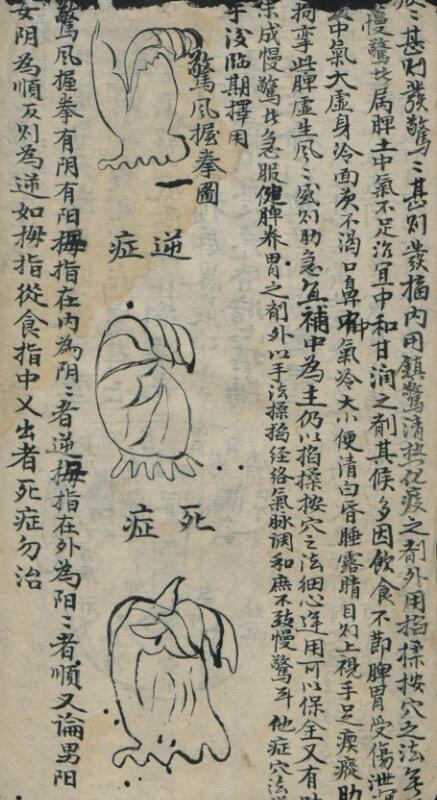 甚則發驚〻甚則發搐內用鎮驚清熱化痰之劑外用掐揉按穴之法無
慢驚此屬脾土中氣不足治宜中和甘润之劑其候多因飲食不節脾胃受傷泄
中氣大虛身冷面黃不渴口鼻中氣冷大小便清白昏睡露睛目則上視手足瘈瘲助
拘孿此脾虛生风〻盛則助急宜補中為主仍以掐揉按穴之法细心運用可以保全又有
未成慢驚此急服健脾养胃之劑外以手法揉掐经络氣脉调和庶不致慢驚耳他症穴法
手法臨期擇用
驚风握拳圖
一
逆症
死症
驚风握拳有阴有阳拇指在内為阴〻者逆拇指在外為阳〻者順又論男阳
女阴為順反則為逆如拇指從食指中叉出者死症勿治